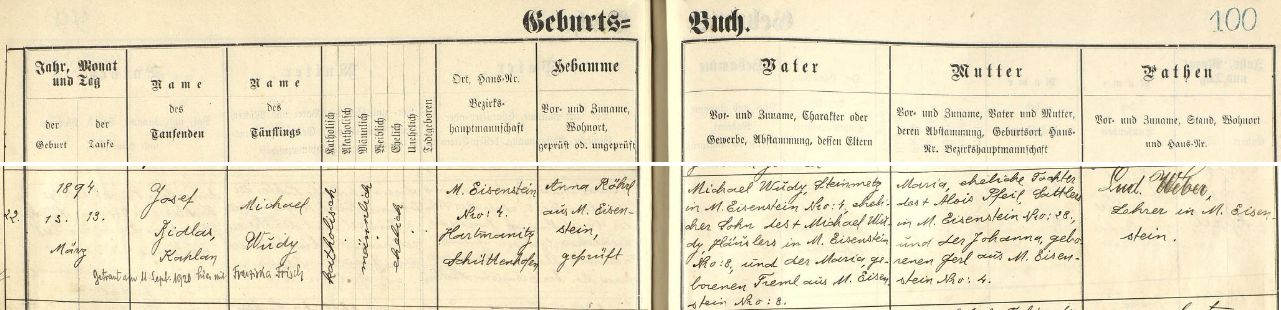 Geburts=
Buch.
100
Jahr, Monat
und Tag
der
Geburt
der
Taufe
Name
des
Taufenden
Name
des
Täuflings
Katholisch
Akatholisch
Männlich
Weiblich
Ehelich
Unehelich
Todtgeboren
Ort, Haus-Nr.
Bezirks-
hauptmannschaft
Hebamme
Vor- und Zuname,
Wohnort,
geprüft od. ungeprüft
Vater
Vor- und Zuname, Charakter oder
Gewerbe, Abstammung, dessen Eltern
Mutter
Vor- und Zuname, Vater und Mutter,
deren Abstammung, Geburtsort, Haus-
Nr. Bezirkshauptmannschaft
Pathen
Vor- und Zuname, Stand, Wohnort
und Haus-Nr.
22.
1894.
13. 13.
März
Josef
Židlas,
Kaplan
Michael
Wudy
Getraut am 11. Sept. 1920 hier mit Franziska Frisch
katholisch
männlich
ehelich
M. Eisenstein
Nro: 4.
Hartmanitz
Schüttenhofen
Anna Röhrl
aus M. Eisen-
stein,
geprüft
Michael Wudy, Steinmetz
in M. Eisenstein Nro: 4, eheli-
cher Sohn des + Michael Wu-
dy, Häuslers in M. Eisenstein
Nro: 8, und der Maria, ge-
borenen Treml aus M. Eisen-
stein Nro: 8.
Maria, eheliche Tochter
des + Alois Pfeil, Sattlers
in M. Eisenstein Nro: 28.,
und der Johanna, gebo-
renen Gerl aus M. Eisen-
stein Nro: 4.
Lud. Weber,
Lehrer in M. Eisen-
stein.